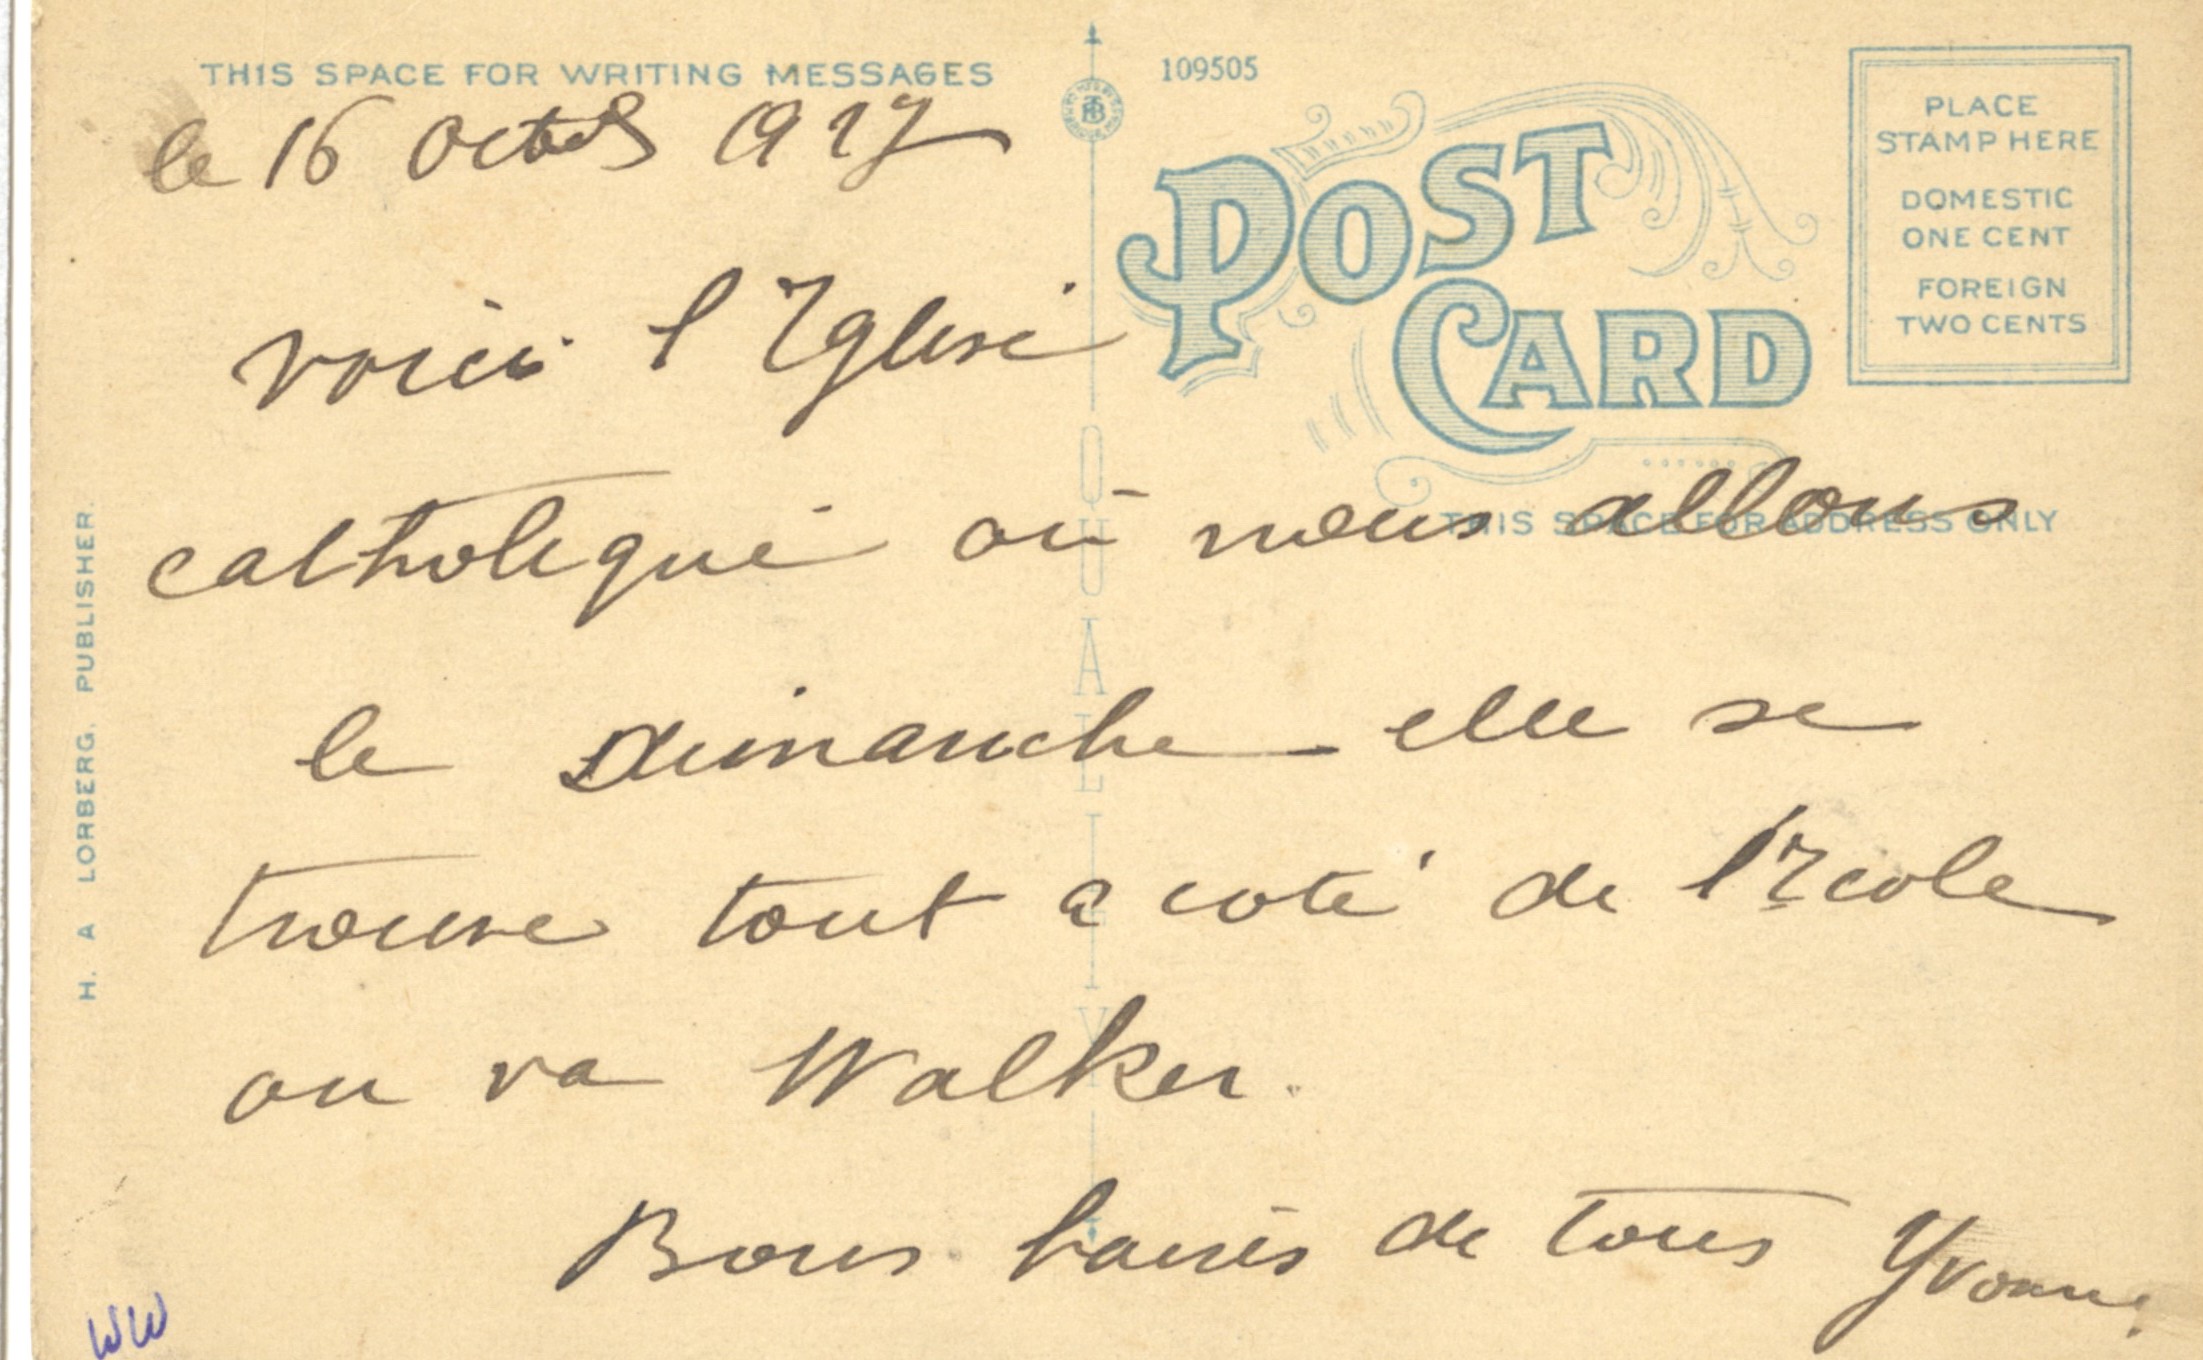 THIS SPACE FOR WRITING MESSAGES
109505
PLACE
STAMP HERE
DOMESTIC
ONE CENT
FOREIGN
TWO CENTS
POST
CARD
THIS SPACE FOR ADDRESS ONLY
QUALITY
H. A LORBERG, PUBLISHER.
le 16 Octob 1917
voici l'Eglise
catholique où nous allons
le Dimanche elle se
trouve tout a coté de l'Ecole
ou va Walker.
Bons baisés de tous Yvonne
WW